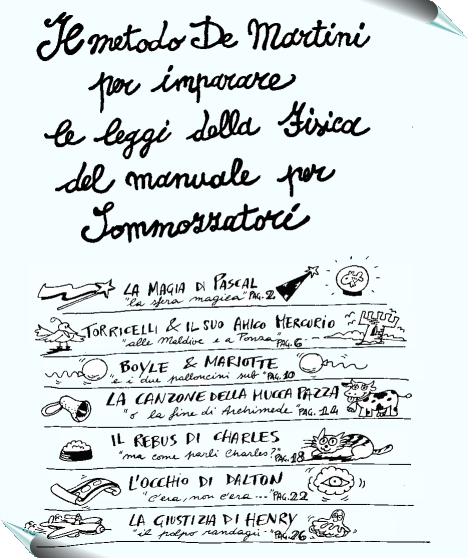 Il metodo De Martini
per imparare
le leggi della Fisica
del manuale per
Sommozzatori
LA MAGIA DI PASCAL
"la sfera magica" PAG. 2
TORRICELLI & IL SUO AMICO MERCURIO
"alle Maldive e a Ponza" PAG. 6
BOYLE & MARIOTTE
"e i due palloncini sub" PAG. 10
LA CANZONE DELLA MUCCA PAZZA
"o la fine di Archimede" PAG. 14
IL REBUS DI CHARLES
"ma come parli Charles?" PAG. 18
L'OCCHIO DI DALTON
"c'era, non c'era..." PAG. 22
LA GIUSTIZIA DI HENRY
"il polpo randagio" PAG. 26